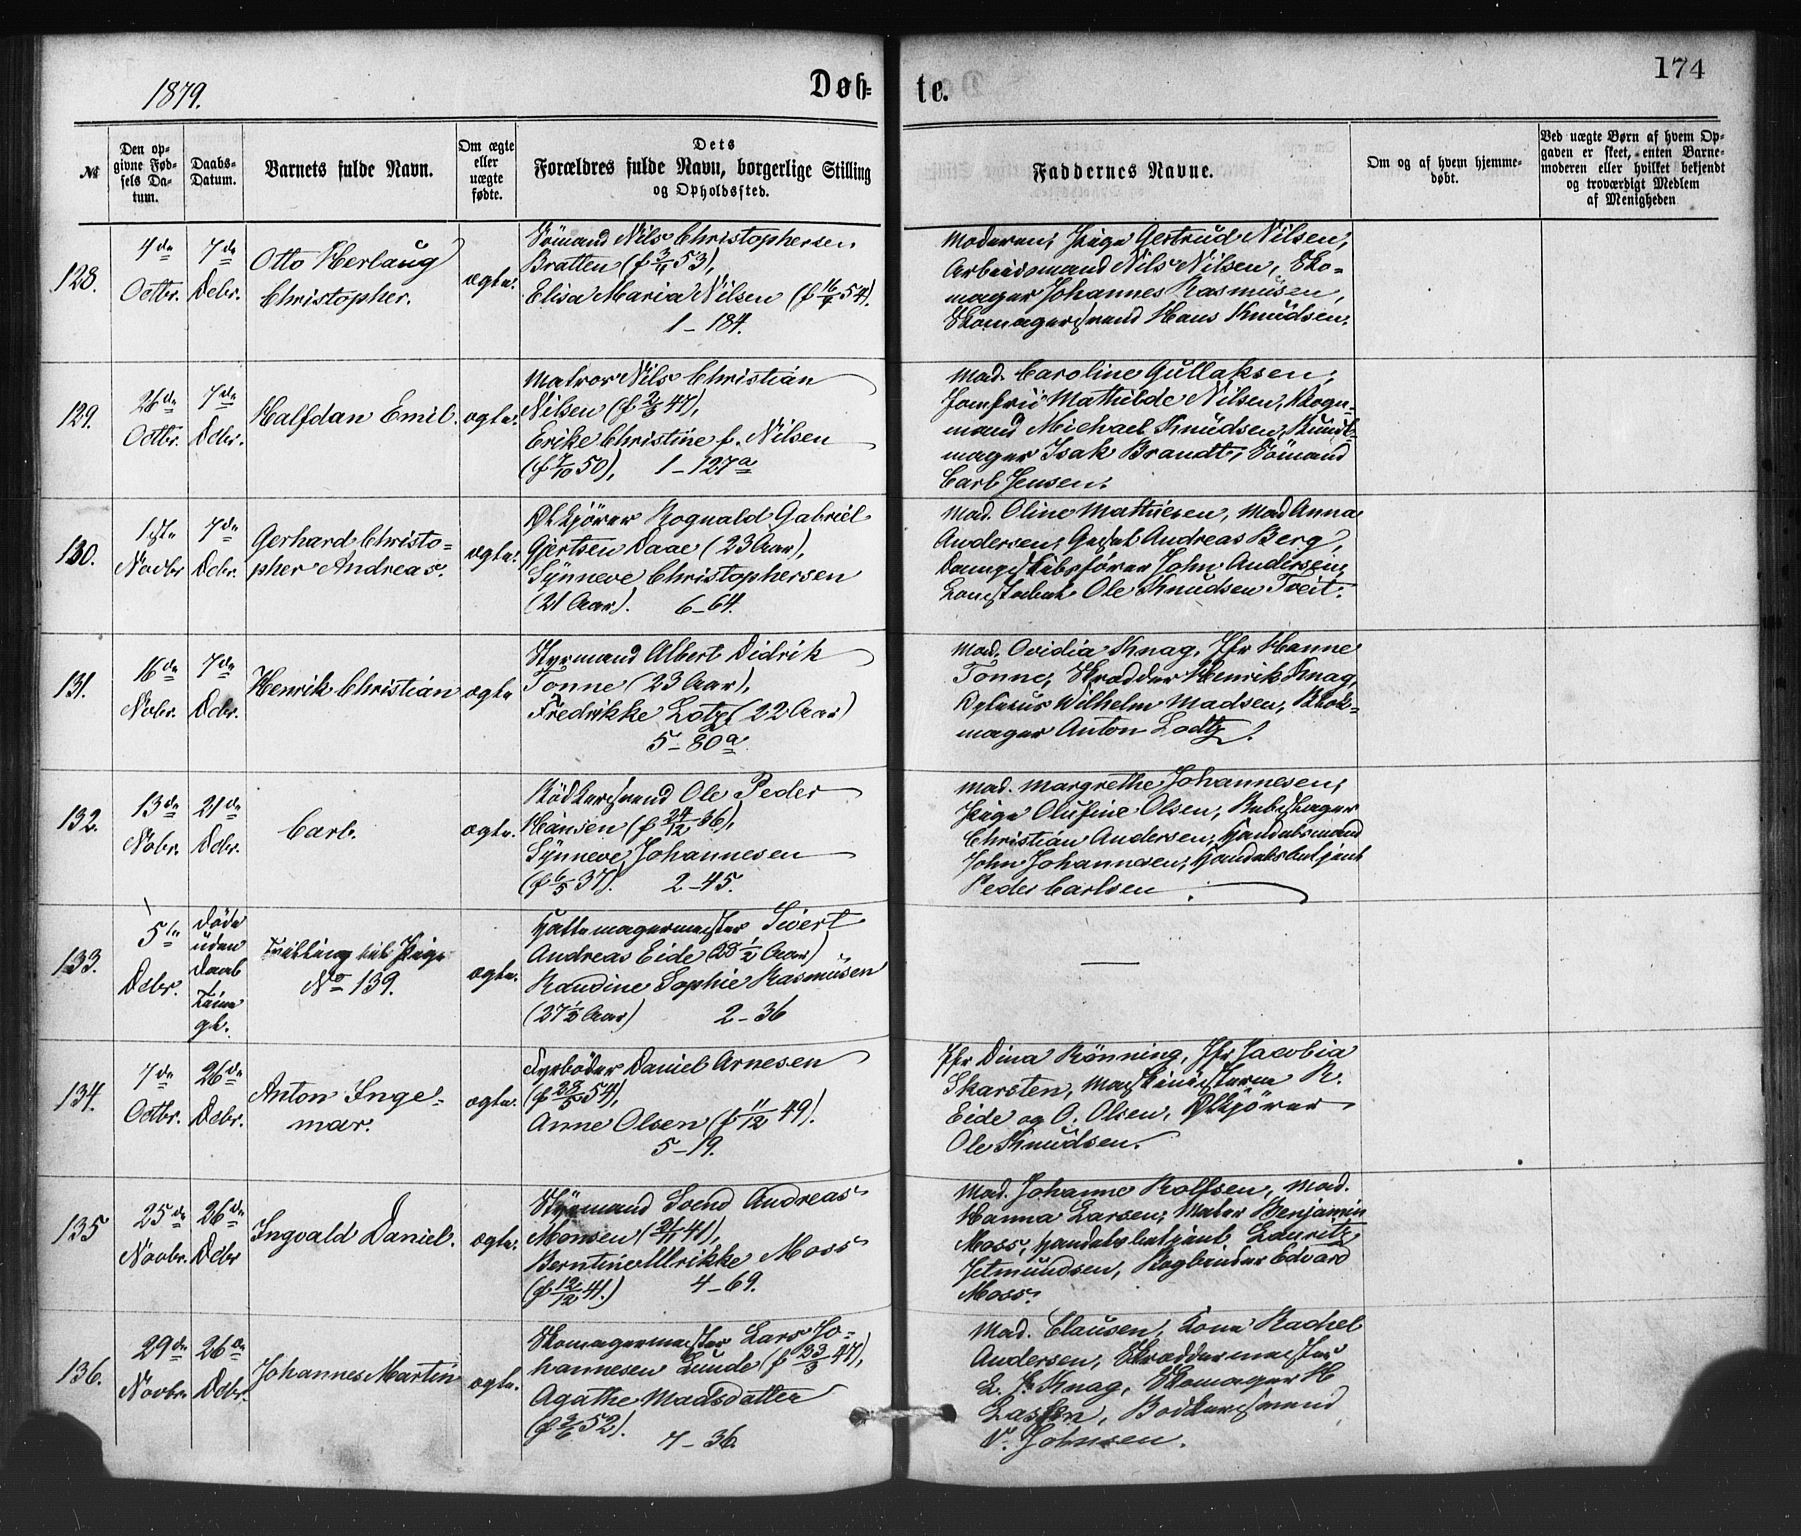 1879.
Døb-
te.
174
№
Den op-
givne Fød-
sels Da-
tum.
Daabs-
Datum.
Barnets fulde Navn.
Om ægte
eller
uægte
fødte.
Dets
Forældres fulde Navn, borgerlige Stilling
og Opholdssted.
Faddernes Navne.
Om og af hvem hjemme-
døbt.
Ved uægte Børn af hvem Op-
gaven er skeet, enten Barne-
moderen eller hvilket bekjendt
og troværdigt Medlem
af Menigheden
128.
4de
Octbr.
7de
Debr.
Otto Herlaug
Christopher.
ægte.
Sömand Nils Christophersen
Bratten (f 3/4 53),
Elisa Maria Nilsen (f 16/4 54).
1-184.
Moderen; Pige Gertrud Nilsen;
Arbeidsmand Nils Nilsen, Sko-
mager Johannes Rasmusen,
Skomagersvend Hans Knudsen.
129.
26de
Octbr.
7de
Dcbr.
Halfdan Emil.
ægte.
Matros Nils Christian
Nilsen (f 2/3 47),
Erike Christine f. Nilsen
(f 7/10 50), 1-127a
Mad. Caroline Gullaksen;
Jomfru Mathilde Nilsen, Bogn-
mand Michael Knudsen, Bundt-
mager Isak Brandt, Sömand
Carl Jensen.
130.
1ste
Novbr
7de
Dcbr.
Gerhard Christo-
pher Andreas.
ægte.
Ølkjører Rognald Gabriel
Gjertsen Daae (23 Aar),
Synneve Christophersen
(21 Aar). 6-64.
Mad. Oline Mathiesen, Mad Anna
Andersen, Andreas Berg,
Dampskibsfører John Andersen,
Konstabel Ole Knudsen Tveit.
131.
16de
Nobr.
7de
Dcbr.
Henrik Christian
ægte
Styrmand Albert Didrik
Tonne (23 Aar),
Fredrikke Lotz (22 Aar)
5-80a
Mad. Ovidia Knag, Jfr Hanne
Tonne, Skrædder Henrik Knag
Wilhelm Madsen, Blok-
mager Anton Lodtz.
132.
13de
Nobr.
21de
Dcbr.
Carl.
ægte.
Bödkersvend Ole Peder
Hansen (f 24/12 36),
Synneve Johannesen
(f 6/5 37). 2-45.
Mad. Margrethe Johannesen,
Pige Olufine Olsen, Rebslager
Christian Andersen, Handelsmand
John Johannesen, Handelsbetjent
Peder Carlsen
133.
5te
Dcbr.
Døde
uden
Daab
Tvilling til Pige
No 139.
ægte.
Hattemagermester Sivert
Andreas Eide (28 1/2 Aar)
Raudine Sophie Rasmusen
(27 1/2 Aar) 2-36
134.
7de
Octbr.
26de
Dcbr.
Anton Inge-
mar.
ægte.
Fyrböder Daniel Arnesen
(f 23/5 54),
Anne Olsen (f 11/12 49).
5-19.
Jfr Dina Rönning, Jfr Jacobia
Skarsten, Maskinisterne R.
Eide og O. Olsen, Ølkjører
Ole Knudsen.
135
25de
Novbr.
26de
Dcbr
Ingvald Daniel.
ægte.
Styrmand Svend Andreas
Monsen (21/4 41),
Berntine Ulrikke Moss
(f 12/12 41.) 4-69.
Mad. Johanne Rolfsen, Mad.
Hanna Larsen, Maler Benjamin
Moss, Handelsbetjent Lauritz
Jetmundsen, Bogbinder Edvard
Moss.
136.
29de
Novbr.
26de
Dcbr.
Johannes Martin
ægte.
Skomagermester Lars Jo-
hannesen Lunde (f 23/3 47),
Agathe Madsdatter
(f 3/6 52). 7-36.
Mad. Clausen, Kone Rachel
Andersen, Skræddermester
L. J. Knag, Skomager H
Lassen, Bödkersvend
V. Johnsen.